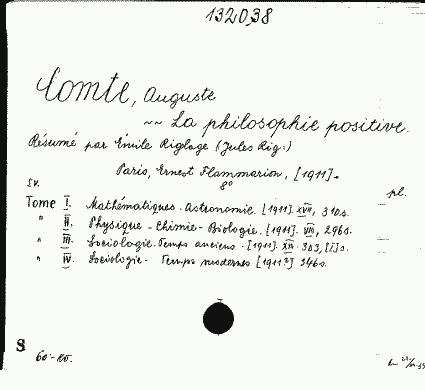 132038
Comte, Auguste
~~ La philosophie positive.
Résumé par Émile Rigolage (Jules Rig:)
Paris, Ernest Flammarion, [1911].
8°
IV.
pl.
Tome I. Mathématiques-Astronomie. [1911]. XVII, 310s.
" II. Physique - Chimie - Biologie. [1911]. VIII, 296s.
" III. Sociologie. Temps anciens. [1911]. XII. 303, [1]s.
" IV. Sociologie - Temps modernes [1911?] 346s.
S
60-